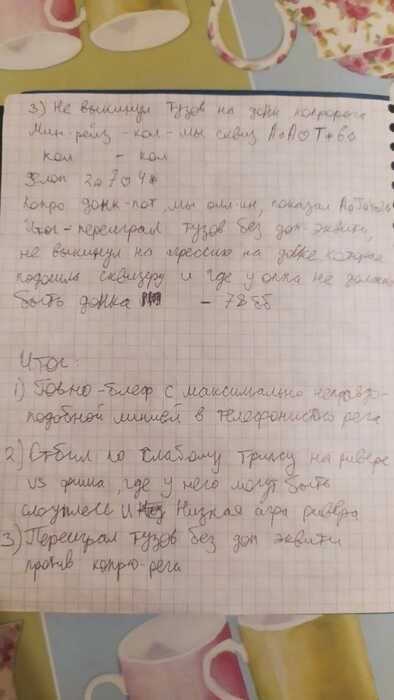 3) Не выкинул тузов на донк копрорега
Мин-рейз - кол - мы сквиз А♠А♡Т♣6♢
кол - кол
Флоп 2♢7♡4♣
Копро донк-пот, мы олл-ин, показал
Итог - переиграл тузов без доп эквити,
не выкинул на агрессию на доске которая
подошла сквизеру и где у оппа не должно
быть донка - 78ББ
Итог:
1) Говно-блеф с максимально неправдо-
подобной линией в телефониста рега
2) Отбил по слабому трипсу на ривере
vs фиша, где у него могут быть
слоуплеи и низкая агра ривера
3) Переиграл тузов без доп эквити
против копро-рега